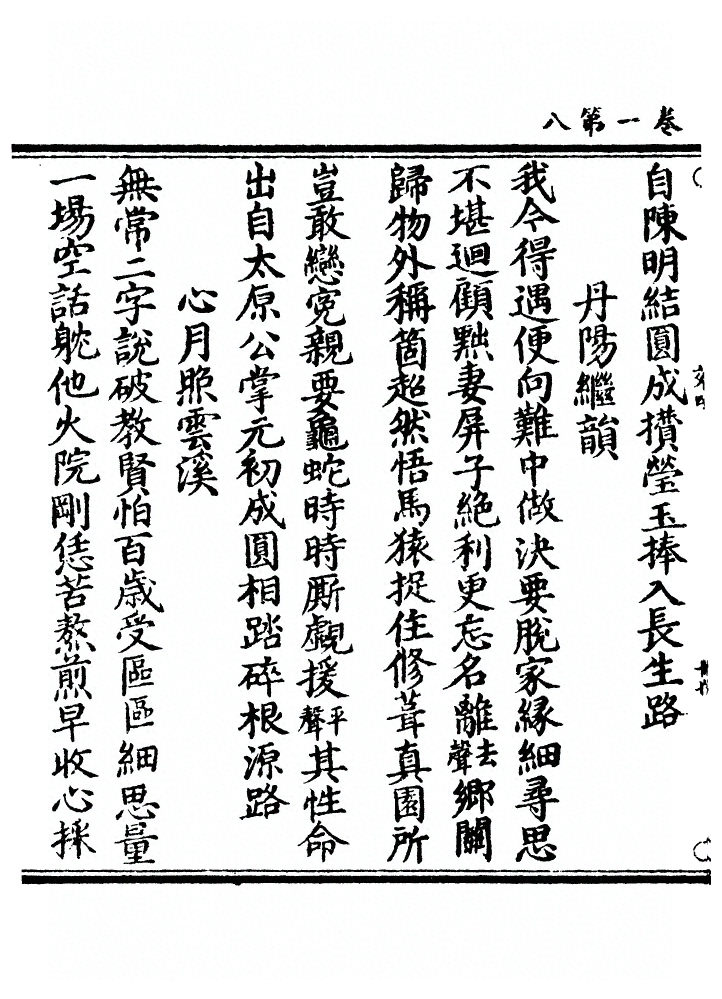 卷一第八
自陳明結圓成攢瑩玉捧入長生路
丹陽繼韻
我今得遇便向難中做決要脫家緣細尋思
不堪迴顧黜妻屏子絕利更忘名離去聲鄉關
歸物外稱箇超然悟馬猿捉住修葺真園所
豈敢戀冤親要龜蛇時時厮覷援平聲其性命
出自太原公掌元初成圓相踏碎根源路
心月照雲溪
無常二字說破教賢怕百歲受區區細思量
一場空話躭他火院剛恁苦熬煎早收心採